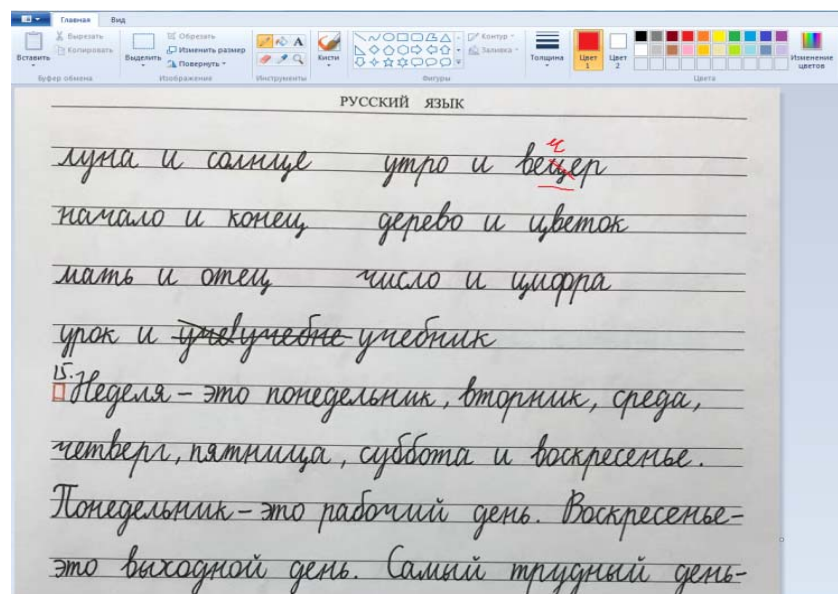 Главная Вид
Вставить
Вырезать
Копировать
Буфер обмена
Выделить
Обрезать
Изменить размер
Повернуть
Изображение
A
Инструменты
Кисти
Контур
Заливка
Фигуры
Толщина
Цвет 1
Цвет 2
Изменение цветов
Цвета
РУССКИЙ ЯЗЫК
ч
луна и солнце утро и вецер
начало и конец дерево и цветок
мать и отец число и цифра
урок и учебне учебник
15.
Неделя – это понедельник, вторник, среда,
четверг, пятница, суббота и воскресенье.
Понедельник – это рабочий день. Воскресенье –
это выходной день. Самый трудный день –